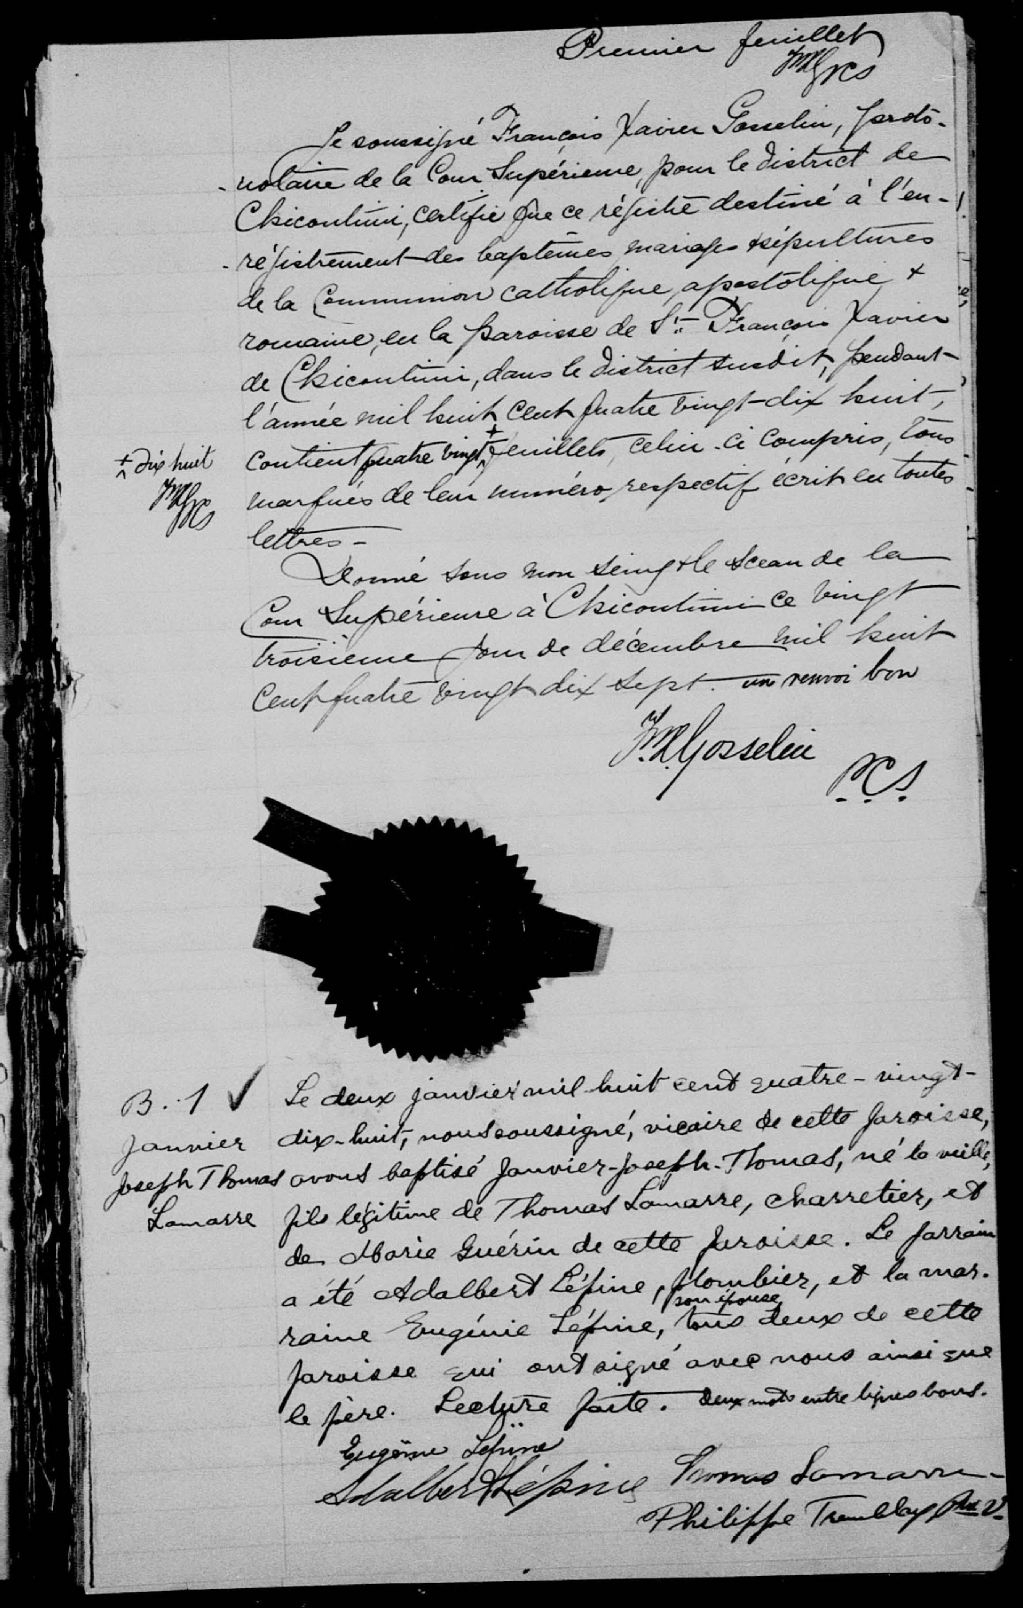 Premier feuillet
FXG pcs
Je soussigné François Xavier Gosselin, proto-
-notaire de la Cour Supérieure, pour le district de
Chicoutimi, certifie que ce régistre destiné à l'en-
-régistrement des baptêmes mariages & sépultures
de la Communion catholique, apostolique, &
romaine, en la paroisse de St. François Xavier
de Chicoutimi, dans le district susdit, pendant
l'année mil huit cent quatre vingt-dix huit,
contient quatre vingt + feuillets, celui-ci compris, tous
+ dix huit
FXG pcs
marqués de leur numéro respectif écrit en toutes
lettres-
Donné sous mon seing & le sceau de la
Cour Supérieure à Chicoutimi ce vingt
troisième jour de décembre mil huit
cent quatre vingt dix sept. un renvoi bon
F.X. Gosselin
P.C.S.
B. 1 ✓
Janvier
Joseph Thomas
Lamarre
Le deux janvier mil huit cent quatre-vingt-
dix-huit, nous soussigné, vicaire de cette paroisse,
avons baptisé Janvier-Joseph-Thomas, né la veille,
fils légitime de Thomas Lamarre, charretier, et
de Marie Guérin de cette paroisse. Le parrain
a été Adalbert Lépine, plombier, et la mar-
son épouse
raine Eugénie Lépine, tous deux de cette
paroisse qui ont signé avec nous ainsi que
le père. Lecture faite. deux mots entre lignes bons.
Eugénie Lépine
Adalbert Lépine Thomas Lamarre
Philippe Tremblay Ptre V.